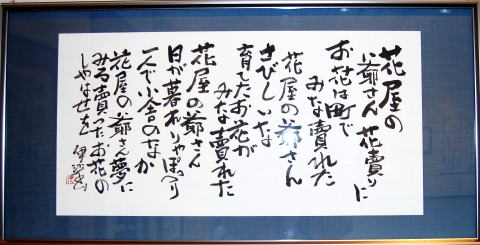 花屋の
爺さん 花賣りに
お花は町で
みな賣れた
花屋の爺さん
さびしいな
育てたお花が
みな賣れた
花屋の爺さん
日が暮れりゃぽっつり
一人で小舎のなか
花屋の爺さん夢に
みる賣ったお花の
しやはせを